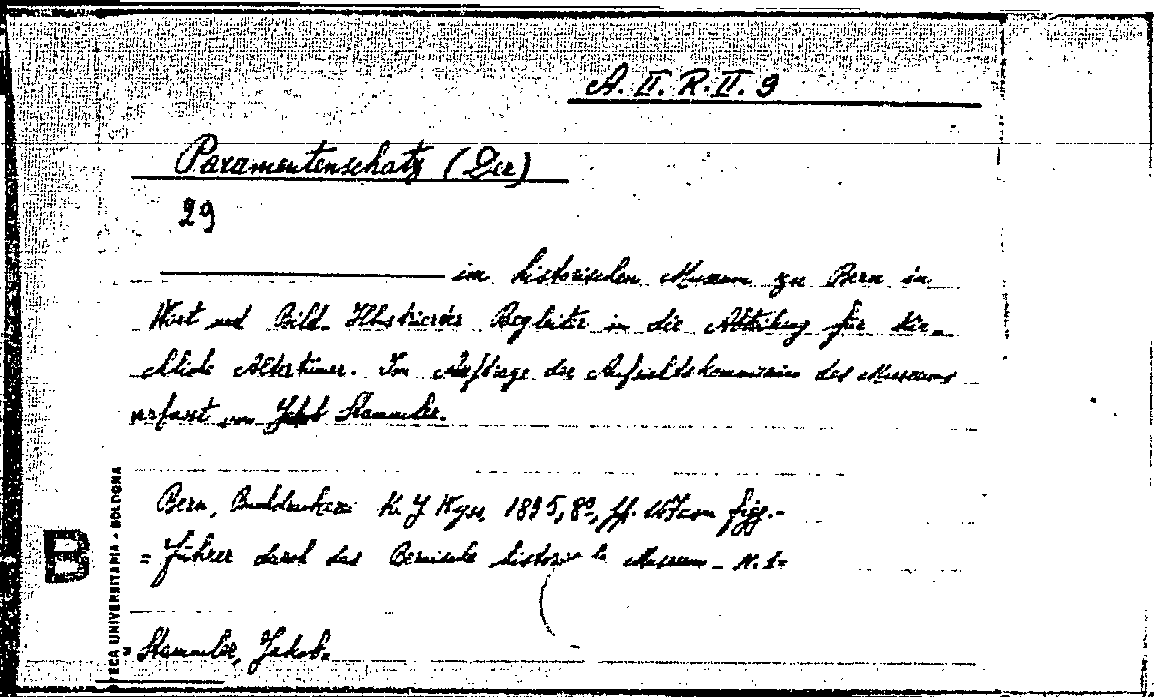 A. II. R. II. 9
Paramentenschatz (Der)
29
im historischen Museum zu Bern in
Wort und Bild. Illustrierter Begleiter in die Abteilung für kir-
chliche Altertümer. Im Auftrage der Aufsichtskommission des Museums
verfasst von Jakob Stammler.
Bern, Buchdruckerei K. J. Wyss, 1895, 8°, pp. con figg.-
= Führer durch das Bernische historische Museum - N. 1=
= Stammler, Jakob.
B
TECA UNIVERSITARIA - BOLOGNA